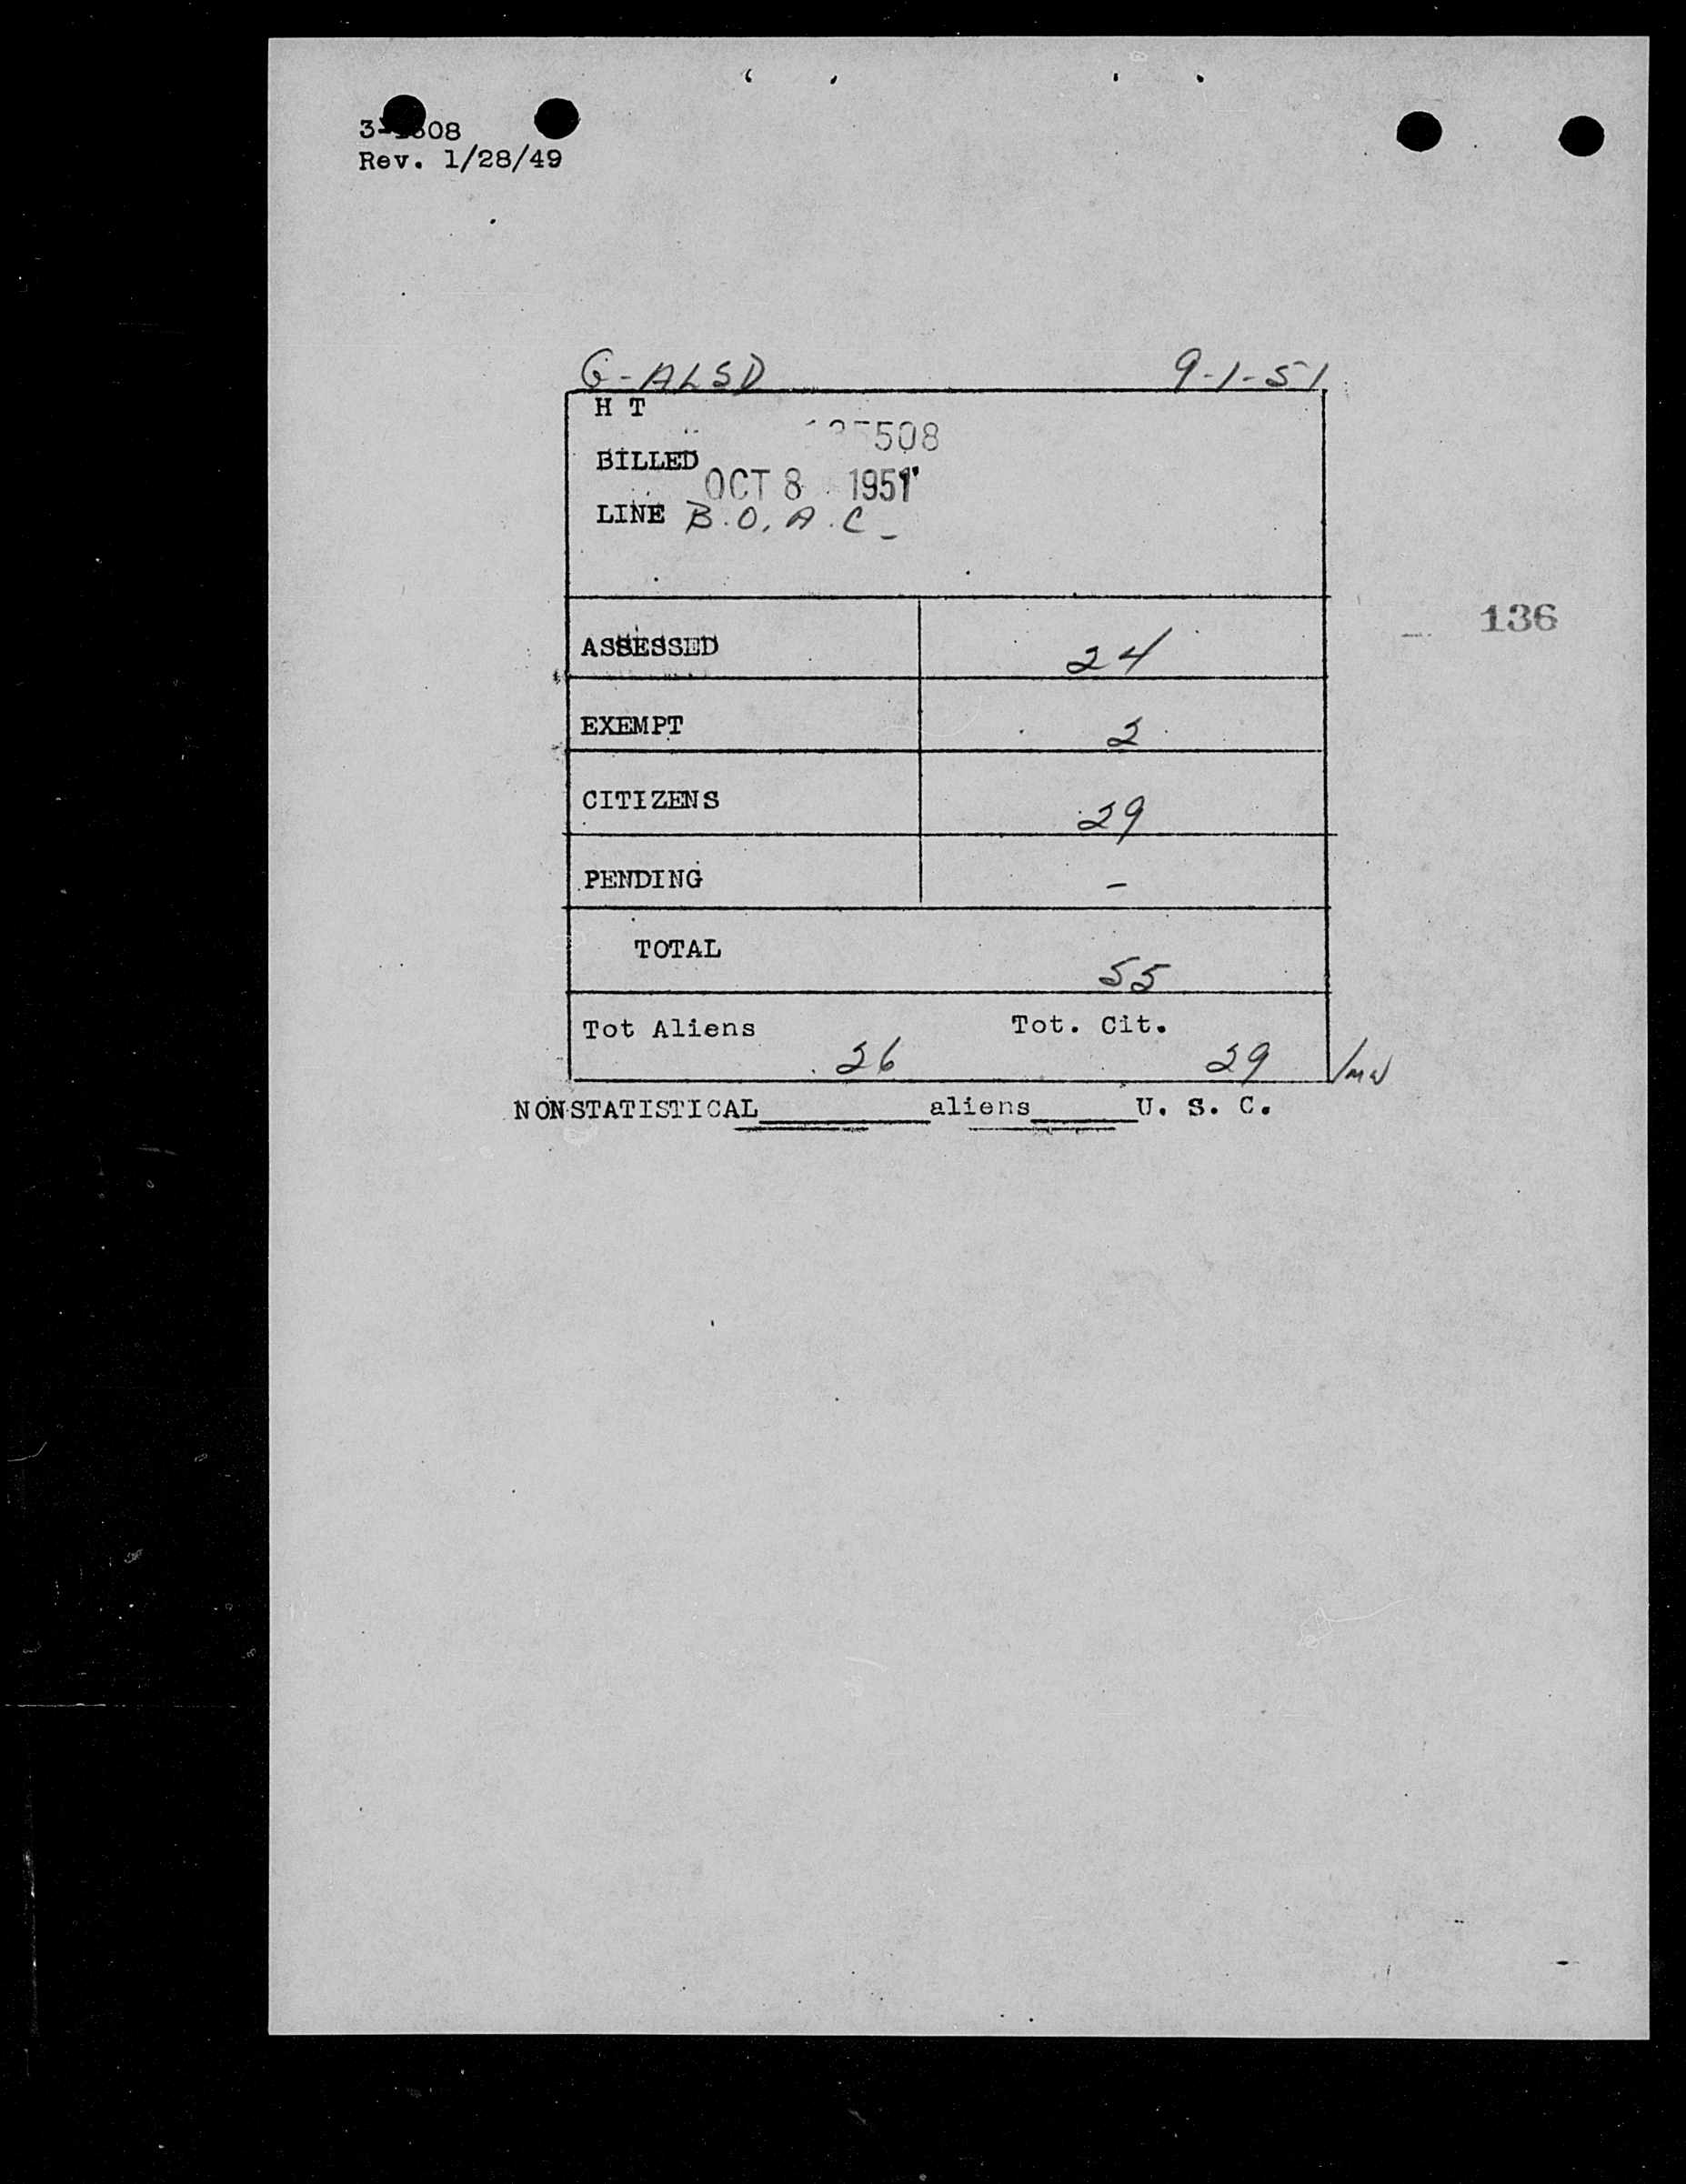 Rev. 1/28/49
G-ALSD 9-1-51
H T
508
BILLED
OCT 8 1951
LINE B.O.A.C
136
ASSESSED 24
EXEMPT 2
CITIZENS 29
PENDING -
TOTAL 55
Tot Aliens 26 Tot. Cit. 29
NONSTATISTICAL______aliens______U. S. C.